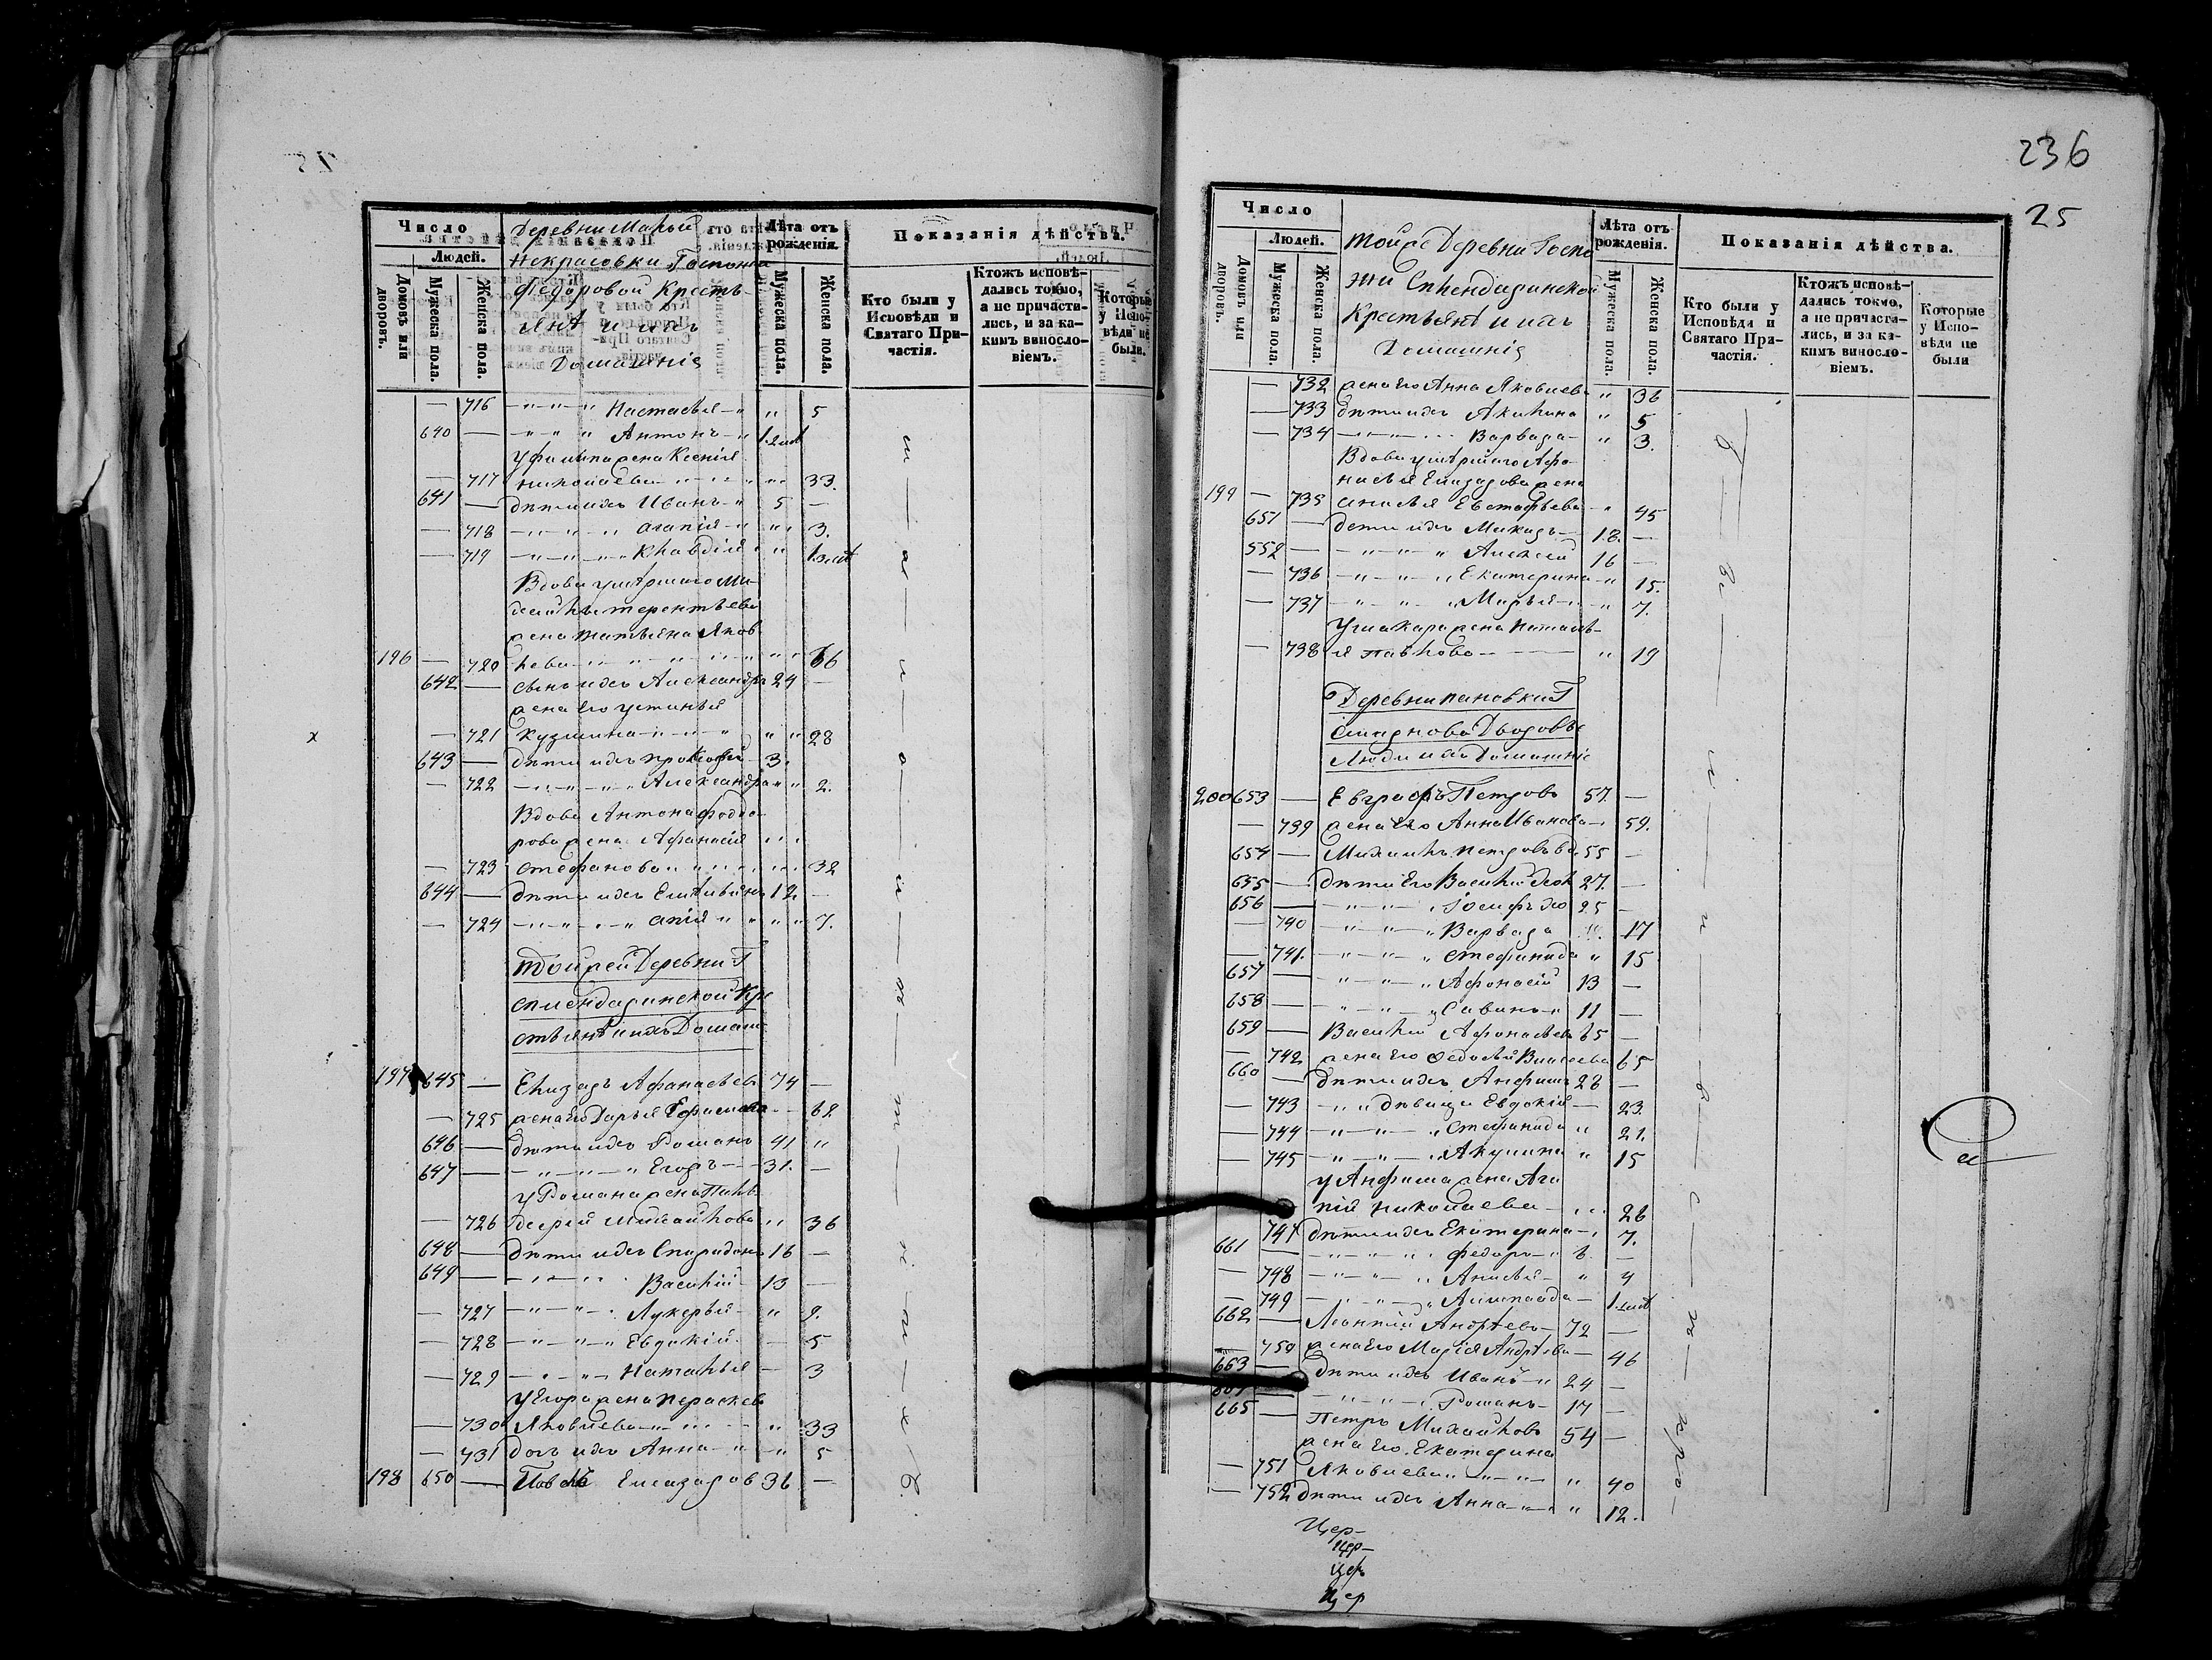 Число
Людей.
Домовъ или дворовъ.
Мужеска пола.
Женска пола.
Деревни Малой
Некрасовки Госпожи
Федоровой Кресть-
янѣ и ихъ
Домашнія
Лѣта отъ рожденія.
Мужеска пола.
Женска пола.
Показанія дѣйства.
Кто были у Исповѣди и Святаго Причастія.
Ктожъ исповѣдались токмо, а не причастились, и за какимъ винословіемъ.
Которые у Исповѣди не были.
— 716 — " — " — " Настасья — " " 5
640 — — " — " " Антонъ — "
жена Ксенія
— 717 Николаева 33.
641 — дѣти ихъ Иванъ — " 5 —
— 718 — " — " " Агапія — " " 3.
— 719 — " — " — " Клавдія " "
Вдова умѣршаго Ми-
хайлы терентьева
жена татьяна Яков
196 — 720 лева — " — " — " 66
642 — сынъ ихъ Александръ 24 —
жена его устинья
— 721 кузмина — " — " " 28
643 — дѣти ихъ прокофій 3.
— 722 — " — " — " Александра " " 2.
Вдова Антона федо-
рова жена Афанасія
— 723 стефанова " " 32
644 — дѣти ихъ 12 —
— 724 — " — " — " апія " " 7.
той жей Деревни Г
спиендадинской Кре
стьянѣ и ихъ Домаш
197 645 — Елизаръ Афанасьевъ 74 —
— 725 жена его Дарья Ефимова — 62
646 — дѣти ихъ Романъ 41 "
647 — — " — " — " Егоръ — — 31. —
у Романа жена Пила-
— 726 гея Михайлова " 36
648 — дѣти ихъ Спиридонъ 16 —
649 — — " — " Василій — 13 —
— 727 — " — " — Лукерья — " 9.
— 728 — " — " — " Евдокія — 5
— 729 — " — " — Наталья — 3
у Егора жена Пераскева
— 730 Яковлева — " " 33
— 731 дочь ихъ Анна — " — " 5
198 650 — Павелъ Елизаров 36 —
236
25
Число
Людей.
Домовъ или дворовъ.
Мужеска пола.
Женска пола.
той же Деревни Госпо
жи Спиендиадинской
Крестьянѣ и ихъ
Домашнія
Лѣта отъ рожденія.
Мужеска пола.
Женска пола.
Показанія дѣйства.
Кто были у Исповѣди и Святаго Причастія.
Ктожъ исповѣдались токмо, а не причастились, и за какимъ винословіемъ.
Которые у Исповѣди не были
— 732 жена его Анна Яковлева " 36
— 733 дѣти ихъ Акилина " 5
— 734 — " — " — Варвара — " 3.
Вдова умѣршаго Афо-
насья Елизарова жена
199 — 735 анисья Евстафьева — " 45
651 — дети ихъ Макаръ — 18. —
552 — — " — " — " Алексей 16 —
— 736 — " — " — " Екатерина — " 15.
— 737 — " — " — " Марья — " — " 7.
У Макара жена Наталь-
— 738 я павлова — — " 19
Деревни пановки Г
Смирнова Дворовые
Люди и ихъ Домашніе
200 653 — Евграфъ Петровъ 57. —
— 739 жена его Анна Иванова — 59.
654 — Михаилъ петровъ вд. 55 —
655 — дѣти его Василій холо 27. —
656 — — " — " — " Іосифъ хо 25 —
— 740 — " — " — " Варвара " 17
— 741. — " — " — " Стефанида " 15
657 — " — " — " Афонасій 13 —
658 — " — " — " Савинъ " 11 —
659 — Василій Афонасьевъ 65 —
— 742 жена его Федосья 65
660 — дѣти ихъ Анфимъ 28 —
— 743 — " " дѣвица Евдокія — 23.
— 744 — " — " — " Стефанида " 21.
— 745 — " — " — " Акулина " 15
у Анфима жена Ага
пія Николаева — " 26
747 дѣти ихъ Екатерина — " 7.
661 — — " — " — " " федоръ — " 6. —
— 748 — " — " — " Анисья — " 4
— 749 — " — " — "
662 — Леонтій Андрѣевъ — 72 —
— 750 жена его Марія Андрѣева — 46
663 — дѣти ихъ Иванъ — " 24 —
— — " — " — " Романъ — 17 —
665 — Петръ Михайловъ 54 —
жена его Екатерина
— 751 Яковлева " — " — " " 40
— 752 дѣти ихъ Анна — " — " " 12.
Цер-
Цер-
Цер
Цер